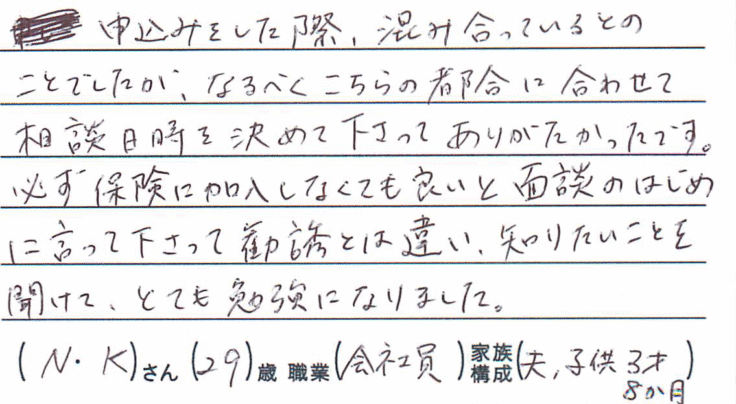 申込みをした際、混み合っているとの
ことでしたが、なるべくこちらの都合に合わせて
相談日時を決めて下さってありがたかったです。
必ず保険に加入しなくても良いと面談のはじめ
に言って下さって勧誘とは違い、知りたいことを
聞けて、とても勉強になりました。
(N・K)さん(29)歳 職業(会社員)家族構成(夫,子供3才
8か月)